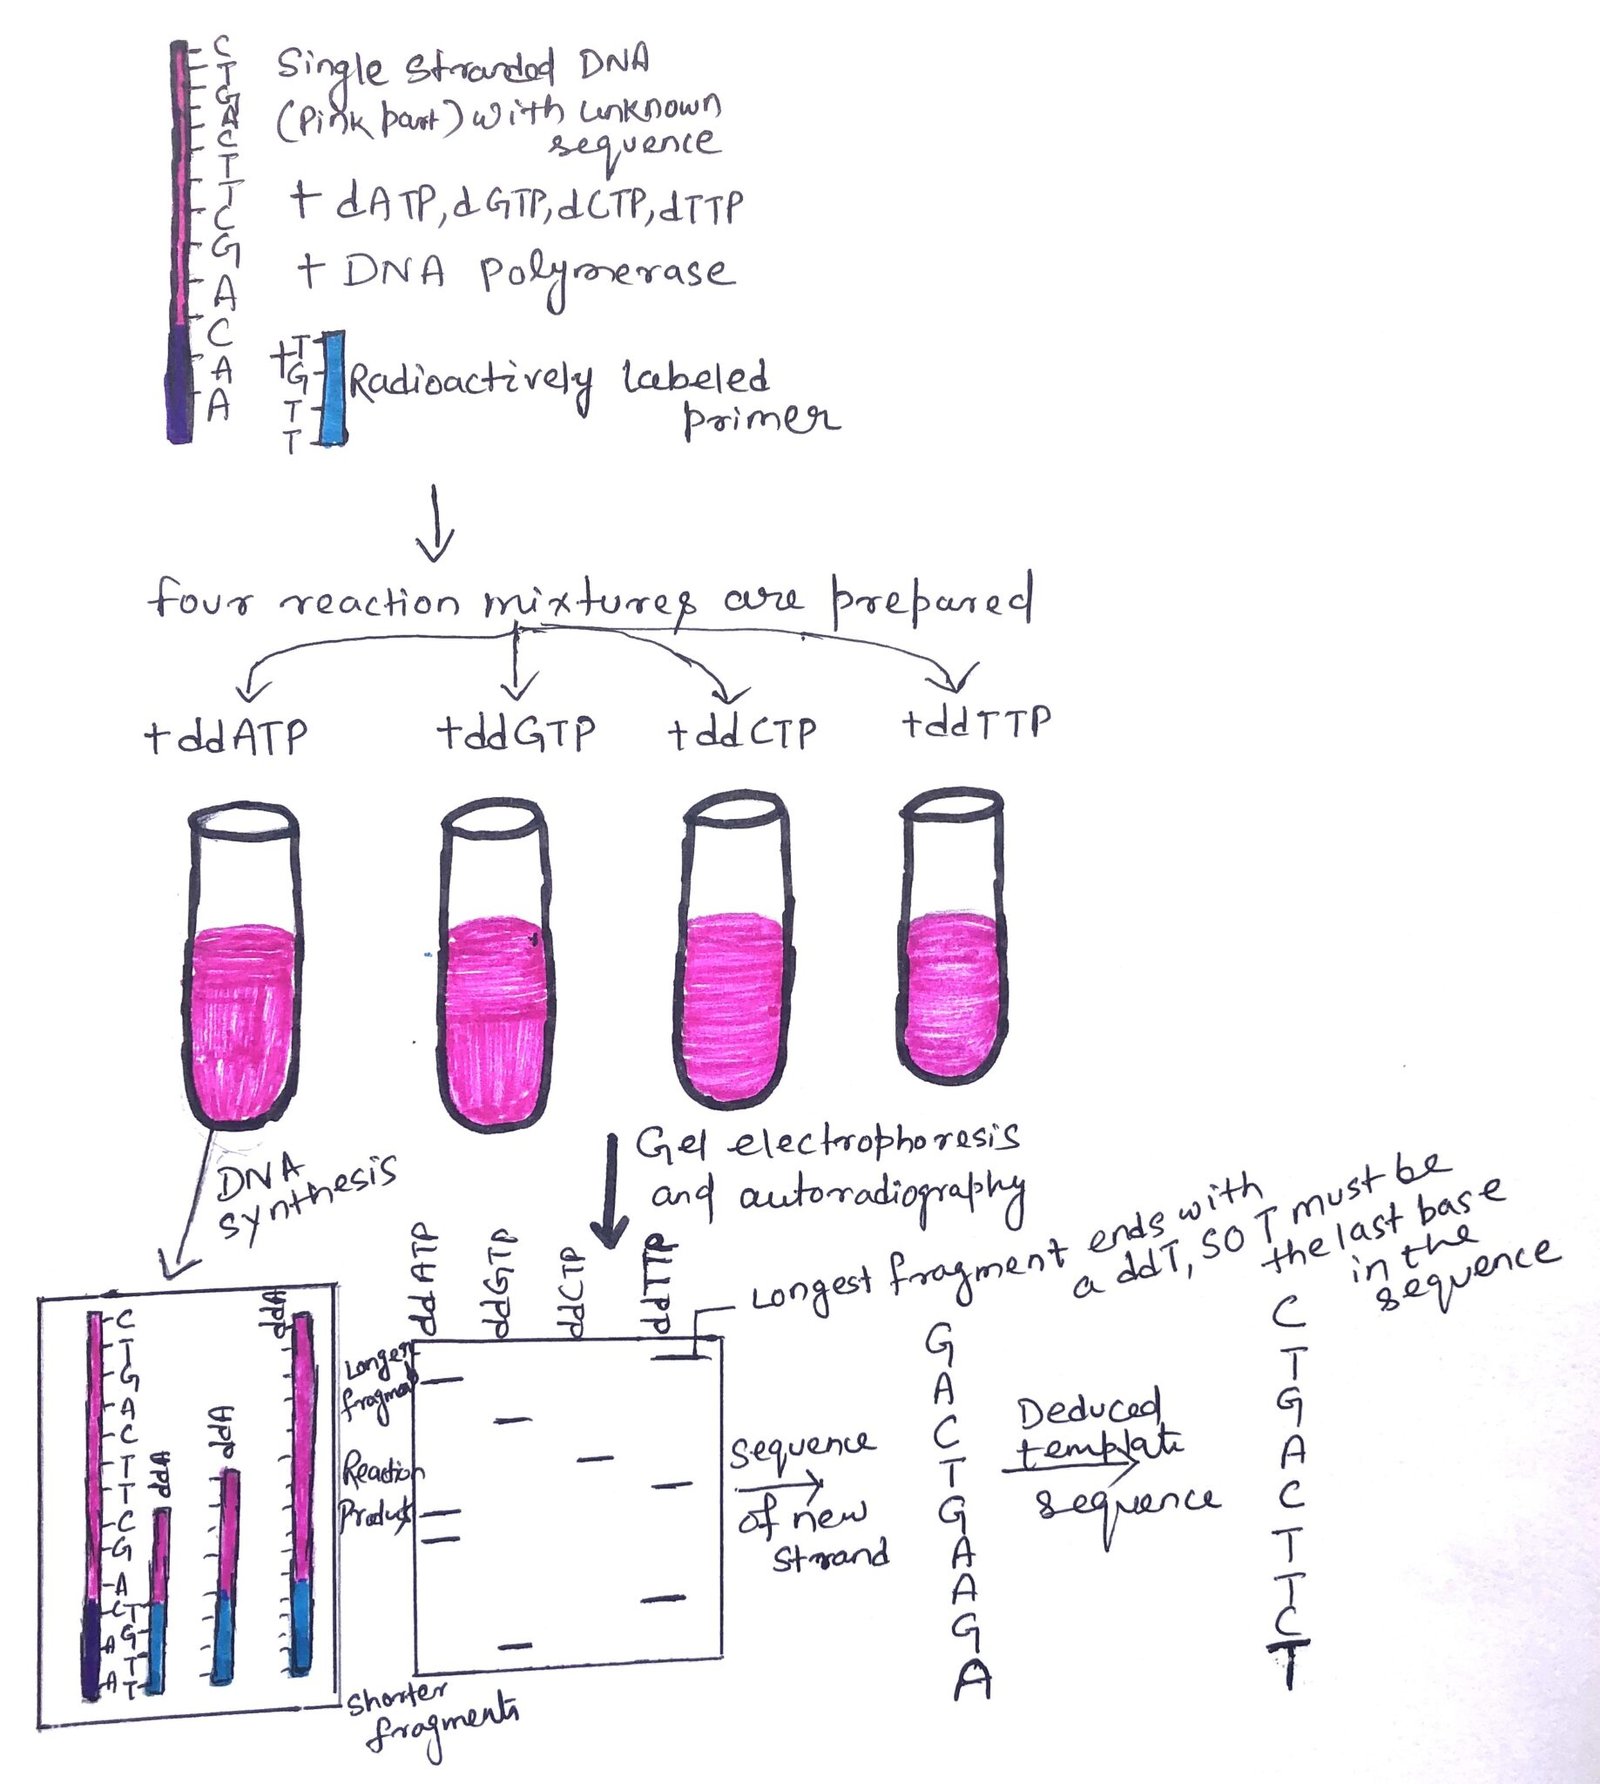 C
T
G
A
C
T
T
C
G
A
C
A
A
Single Stranded DNA
(Pink part) with unknown
sequence
+ dATP, dGTP, dCTP, dTTP
+ DNA polymerase
+
T
G
T
T
Radioactively labeled
primer
four reaction mixtures are prepared
+ddATP
+ddGTP
+ddCTP
+ddTTP
DNA
synthesis
Gel electrophoresis
and autoradiography
Longest fragment ends with
a ddT, SO T must be
the last base
in the
sequence
ddATP
ddGTP
ddCTP
ddTTP
C
T
G
A
C
T
T
C
G
A
C
A
A
ddA
T
G
T
T
ddA
ddA
Longer
fragment
Reaction
Product
Shorter
fragments
Sequence
of new
Strand
G
A
C
T
G
A
A
G
A
Deduced
template
sequence
C
T
G
A
C
T
T
C
T